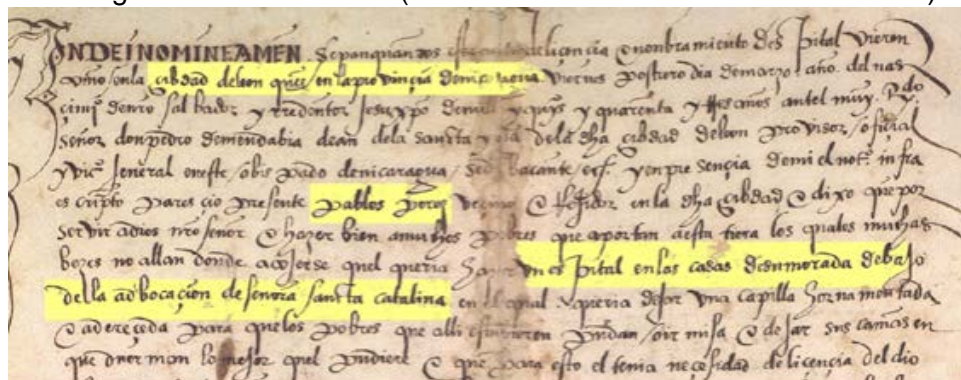 IN DEI NOMINE AMEN Sepan quantos esta de licencia e nonbramiento de espital vieren
como en la cibdad de leon ques en la provinçia de nicaragua viernes postrero dia de março año del nas
çimiº de nro salbador y rredentor Jesuxpo de mill y quarenta y tres años antel muy Rdo
señor don pedro de mendabia dean dela sancta yglª dela dha çibdad de leon provisor / oficial
y vicº Jeneral en este / obispado de nicaragua / sed bacante / ecª y en presençia de mi el notº infra
escripto paresçio presente pablos perez vecino e Regidor en la dha çibdad e dixo que por
servir a dios nro señor e hazer bien a muchos pobres que aportan a esta tierra los quales muchas
bezes no allan donde acojerse quel queria hazer un espital en las casas de su morada debaxo
de lla adbocaçion de señora sancta catalina en el qual queria dejar una capilla hornamentada
e adereçada para que los pobres que alli estuvieren puedan / oir misa e dejar sus camas en
que duerman lo mejor quel pudiere e que para esto el tenia necesidad de licençia del dio